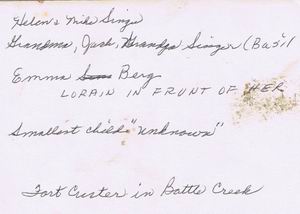 Helen & Mike Singer
Grandma, Jack, Grandpa Singer (Basil
Emma Berg
LORAIN IN FRUNT OF HER
Smallest child "unknown"
Fort Custer in Battle Creek